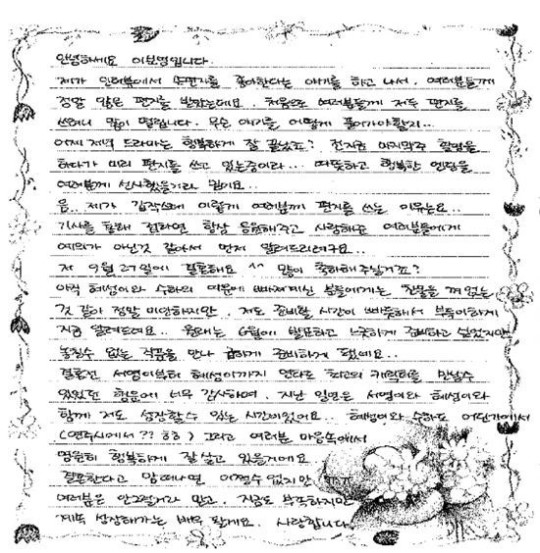 안녕하세요 이보영입니다.
제가 인터뷰에서 손편지를 좋아한다는 얘기를 하고 나서, 여러분들께
정말 많은 편지를 받았는데요. 처음으로 여러분들께 저두 편지를
쓰려니 많이 떨립니다. 무슨 얘기를 어떻게 풀어가야할지...
어제저녁 드라마는 행복하게 잘 끝났죠? 전지금 마지막주 촬영을
하다가 미리 편지를 쓰고 있는중이라... 따뜻하고 행복한 엔딩을
여러분께 선사했을거라 믿어요..
음.. 제가 갑작스레 이렇게 여러분께 편지를 쓰는 이유는요..
기사를 통해 전하면 항상 응원해주고 사랑해준 여러분들에게
예의가 아닌것 같아서 먼저 알려드리려구요..
저 9월 27일에 결혼해요 ^^ 많이 축하해주실거죠?
아직 혜성이와 수하의 여운에 빠져계신 분들에게는 찬물을 껴얹는
것 같아 정말 미안하지만, 저도 준비할 시간이 빠듯해서 부득이하게
지금 알려드려요.. 원래는 6월에 발표하고 느긋하게 준비하고 싶었지만
놓칠수 없는 작품을 만나 급하게 준비하게 됐네요..
결혼전 서영이부터 혜성이까지 연타로 최고의 캐릭터를 만날수
있었던 행운에 너무 감사하며, 지난 일년은 서영이와 혜성이와
함께 저도 성장할수 있는 시간이었어요. 혜성이와 수하도 어딘가에서
(연주시에서?? ㅎㅎ) 그리고 여러분 마음속에서
영원히 행복하게 잘 살고 있을거에요
결혼한다고 맘 떠나면 어쩔수 없지만
여러분은 안그럴거라 믿고, 지금도 부족하지만
계속 성장해가는 배우 될게요. 사랑합니다